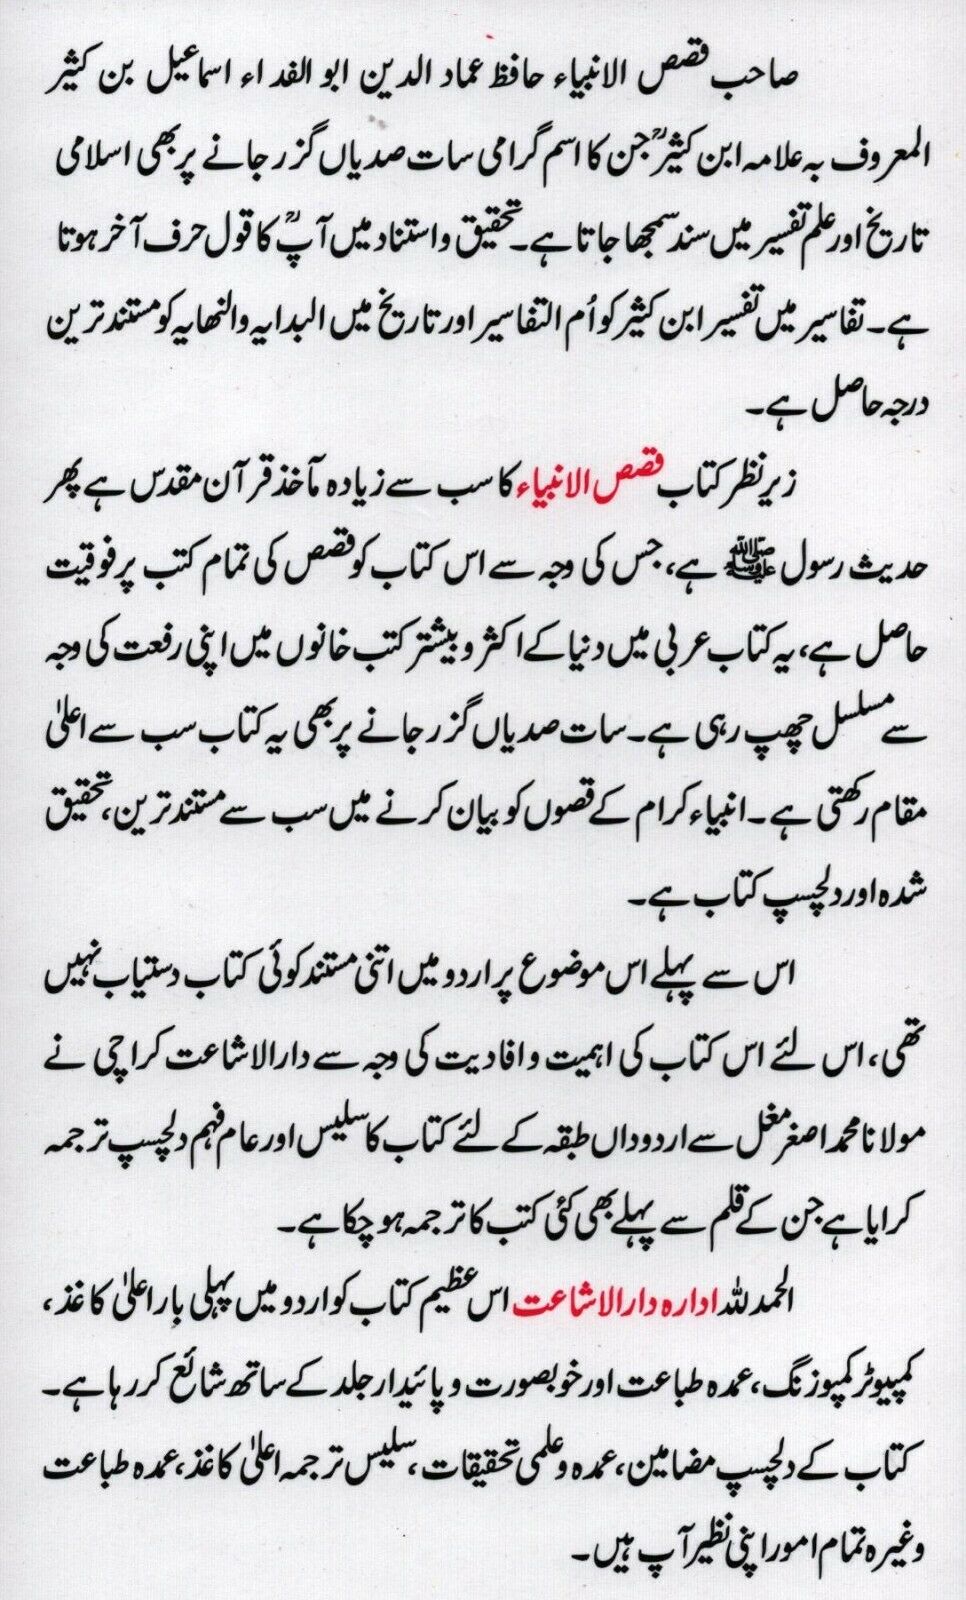 صاحب قصص الانبیاء حافظ عماد الدین ابو الفداء اسماعیل بن کثیر
المعروف بہ علامہ ابن کثیرؒ جن کا اسم گرامی سات صدیاں گزر جانے پر بھی اسلامی
تاریخ اور علم تفسیر میں سند سمجھا جاتا ہے۔ تحقیق و استناد میں آپؒ کا قول حرف آخر ہوتا
ہے۔ تفاسیر میں تفسیر ابن کثیر کو اُم التفاسیر اور تاریخ میں البدایہ والنھایہ کو مستند ترین
درجہ حاصل ہے۔
زیر نظر کتاب قصص الانبیاء کا سب سے زیادہ مآخذ قرآن مقدس ہے پھر
حدیث رسول ﷺ ہے، جس کی وجہ سے اس کتاب کو قصص کی تمام کتب پر فوقیت
حاصل ہے، یہ کتاب عربی میں دنیا کے اکثر و بیشتر کتب خانوں میں اپنی رفعت کی وجہ
سے مسلسل چھپ رہی ہے۔ سات صدیاں گزر جانے پر بھی یہ کتاب سب سے اعلیٰ
مقام رکھتی ہے۔ انبیاء کرام کے قصوں کو بیان کرنے میں سب سے مستند ترین، تحقیق
شدہ اور دلچسپ کتاب ہے۔
اس سے پہلے اس موضوع پر اردو میں اتنی مستند کوئی کتاب دستیاب نہیں
تھی، اس لئے اس کتاب کی اہمیت و افادیت کی وجہ سے دارالاشاعت کراچی نے
مولانا محمد اصغر مغل سے اردوداں طبقہ کے لئے کتاب کا سلیس اور عام فہم دلچسپ ترجمہ
کرایا ہے جن کے قلم سے پہلے بھی کئی کتب کا ترجمہ ہو چکا ہے۔
الحمدللہ ادارہ دارالاشاعت اس عظیم کتاب کو اردو میں پہلی بار اعلیٰ کاغذ،
کمپیوٹر کمپوزنگ، عمدہ طباعت اور خوبصورت و پائیدار جلد کے ساتھ شائع کر رہا ہے۔
کتاب کے دلچسپ مضامین، عمدہ و علمی تحقیقات، سلیس ترجمہ اعلیٰ کاغذ، عمدہ طباعت
وغیرہ تمام امور اپنی نظیر آپ ہیں۔